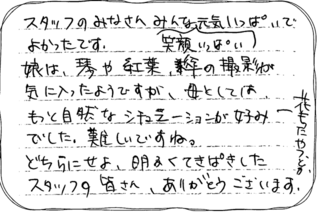 スタッフのみなさん みんな元気いっぱいで
笑顔いっぱい
よかったです。
娘は、琴や紅葉、傘の撮影が
気に入ったようですが、母としては、
もっと自然なシチュエーションが好み
でした。難しいですね。
どちらにせよ、明るくてきぱきした
スタッフの皆さん、ありがとうございます。